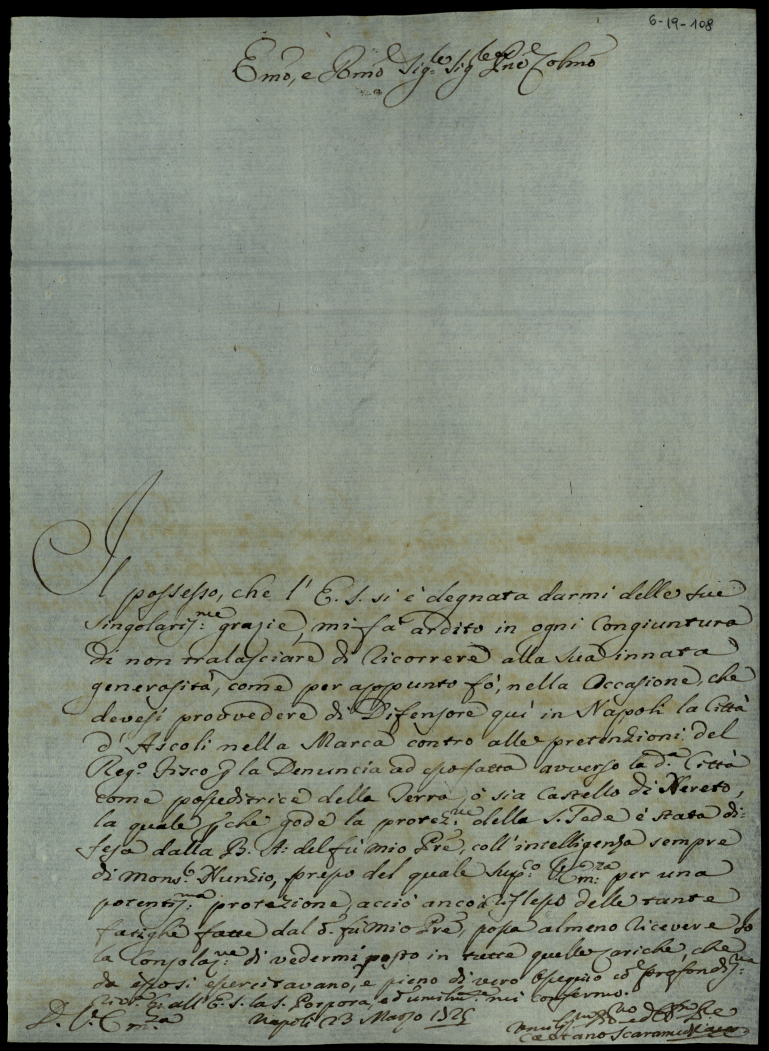 6-19-108
Emo, e Rmo Sig.re Sig.re Pne Colmo
Il possesso, che l'E. S. si è degnata darmi delle sue
singolariss:me grazie, mi fa ardito in ogni congiuntura
di non tralasciare di ricorrere alla sua innata
generosità, come per appunto fò, nella Occasione, che
devesi provvedere di Difensore quì in Napoli la Città
d'Ascoli nella Marca contro alle pretenzioni del
Reg.o Fisco p la Denuncia ad essa fatta avverso la d.a Città
come posseditrice della Terra, ò sia Castello di Nereto,
la quale pche gode la protez:ne della S. Sede è stata di:
fesa dalla B. A: del fù mio Pre, coll'intelligenza sempre
di Mons.r Nunzio, presso del quale supp.co l'Em:za per una
potentiss:ma protezione, acciò ancora riflesso delle tante
fatighe fatte dal d.o fù mio Pre, possa almeno ricevere io
la Consolaz:ne di vedermi posto in tutte quelle cariche, che
da esso si esercitavano, e pieno di vero ossequio co profondiss:ma
all'E. S. la S. Porpora e mi confermo.
D. V. Em:za Napoli 23 Marzo
Gaetano